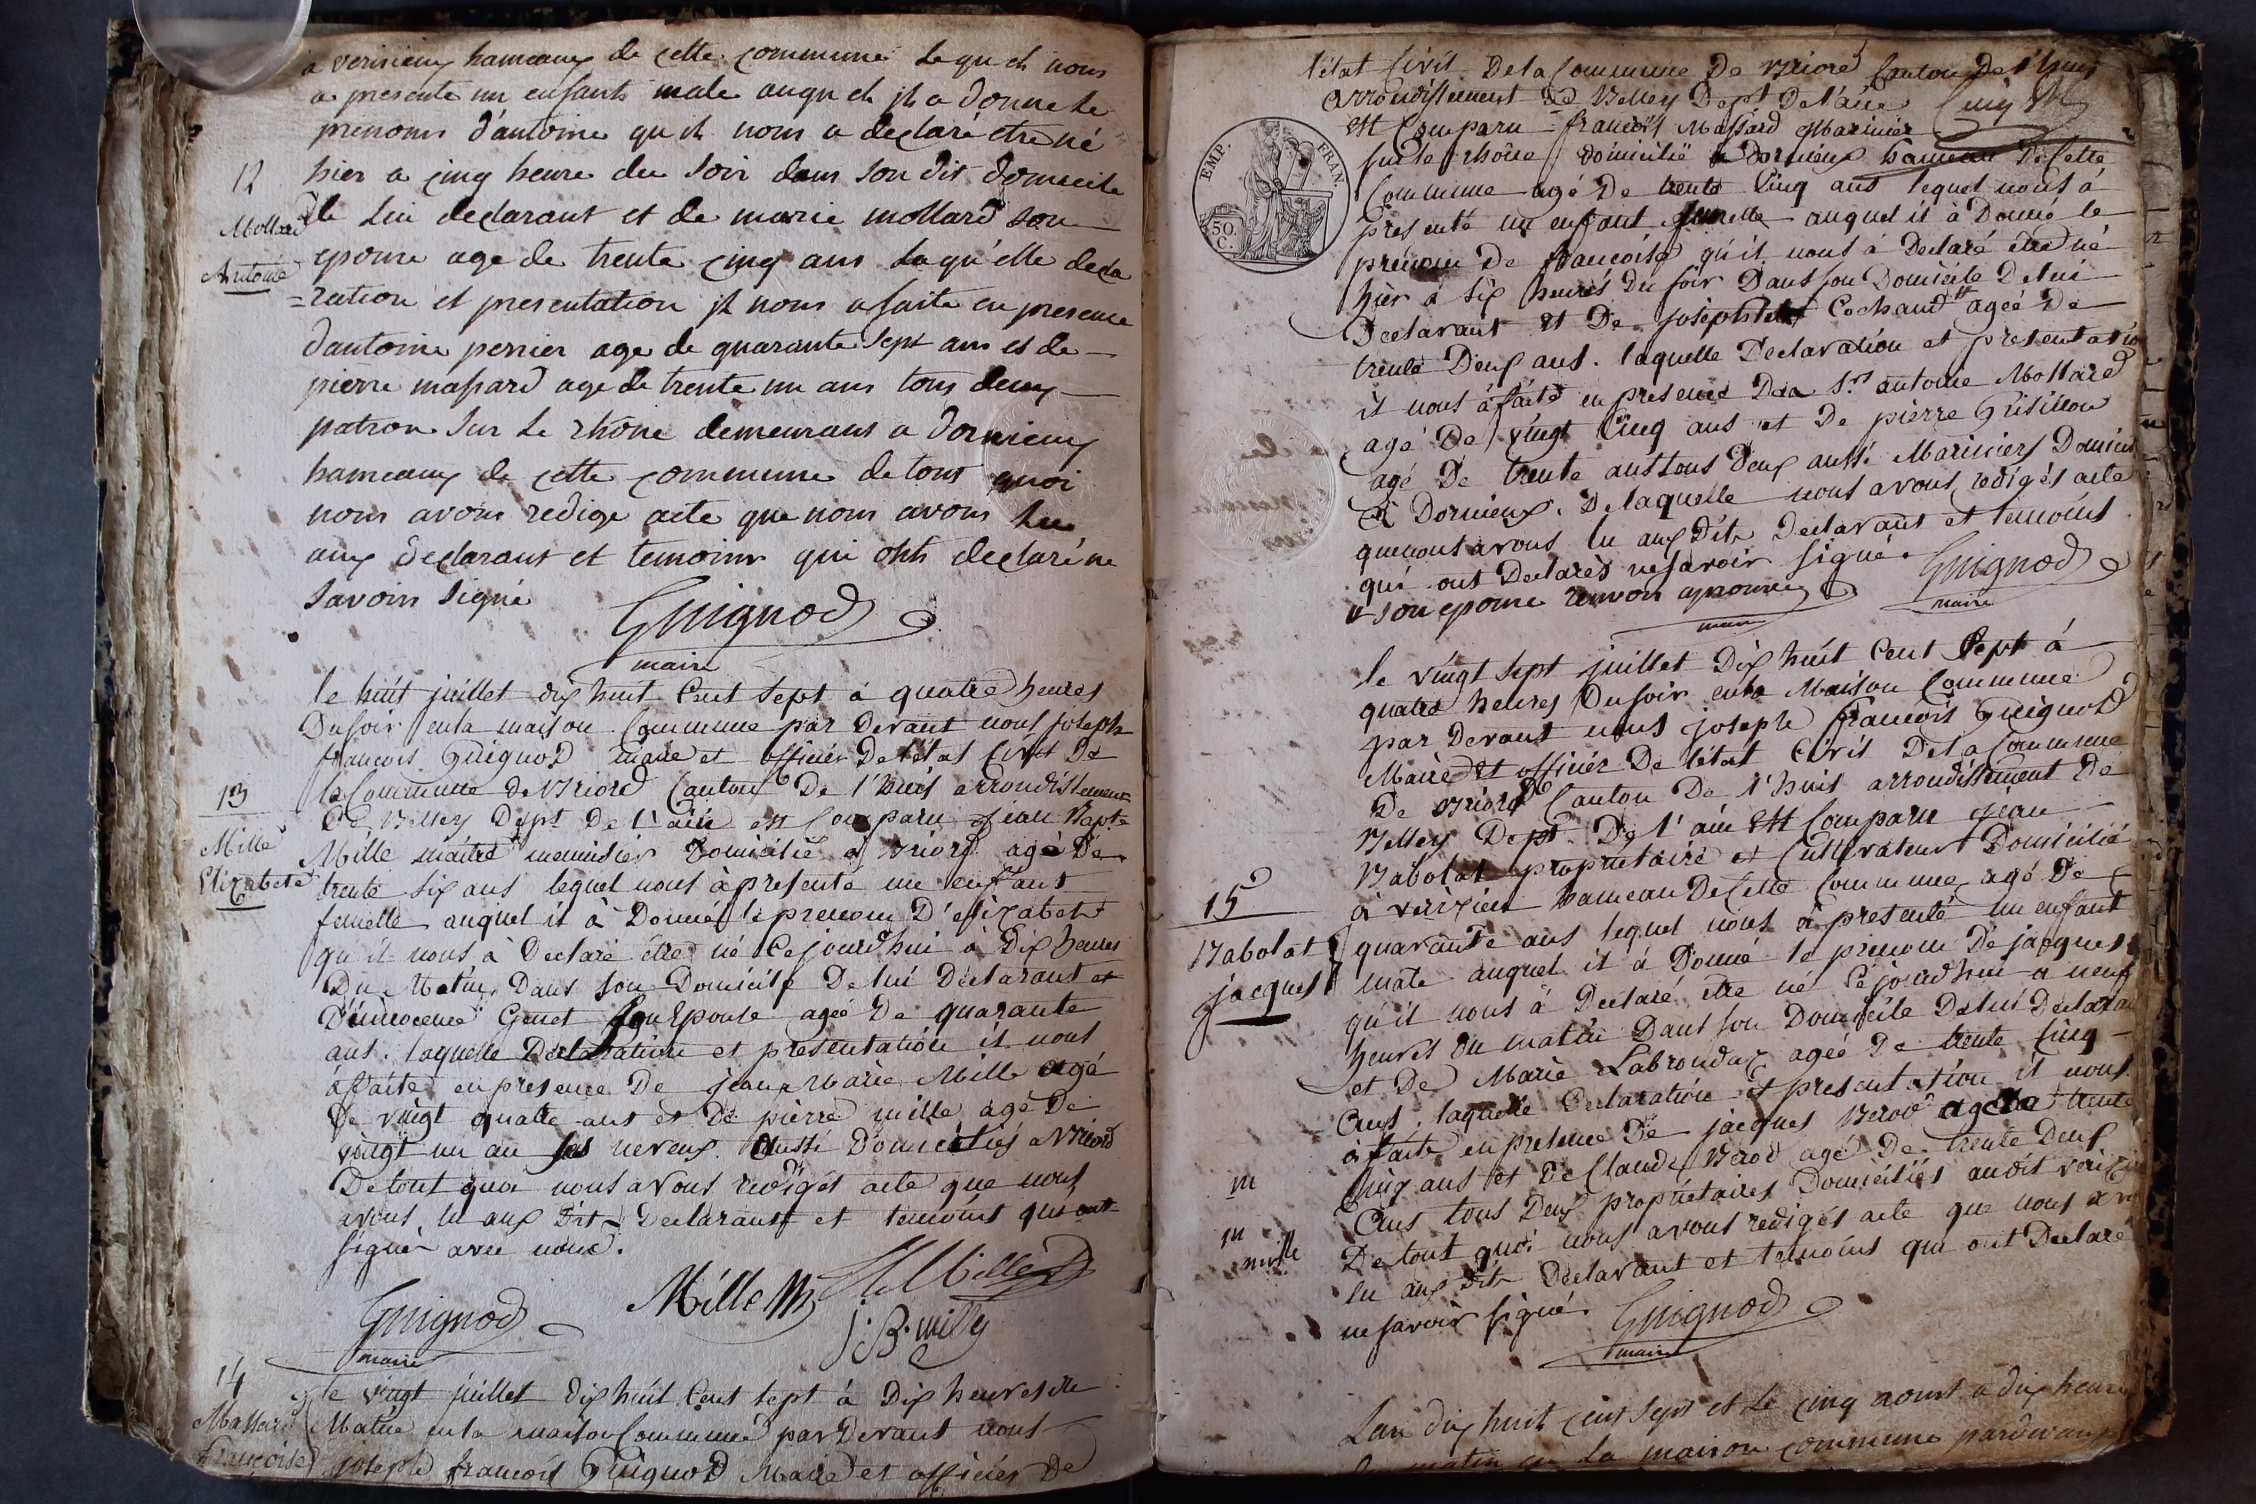 a verisieux hameaux de cette commune le quel nous
a presente un enfants male auquel il a donne le
prenoms d'antoine qu il nous a declaré etre né
hier a cinq heure du soir dans son dit domicile
12
Mollard
Antoine
de lui declarant et de marie mollard son
epouse age de trente cinq ans la qu'elle decla
=ration et presentation il nous a faite en presence
d'antoine perrier age de quarante sept ans et de
pierre massard age de trente un ans tous deux
patron sur le rhône demeurans a dornieux
hameaux de cette commune de tous quoi
nous avons redige acte que nous avons lu
aux declarant et temoins qui onts declaré ne
savoir signé
Guignod
maire
le huit juillet dix huit Cent sept à quatre heures
Du soir en la maison Commune par Devant nous joseph
françois Guignod maire et officier De l'état Civil De
13
Mille
Elizabete
la Commune de Briord Canton De l'huis arrondissement
De Belley Dept De l'ain est Comparu jean Bapte
Mille maitre menuisier Domicilié a Briord agé De
trente six ans lequel nous à presenté un enfant
femelle auquel il à Donné le prenom D'elizabeth
qu'il nous à Declaré être né Cejourdhui à Dix heures
Du Matin, Dans son Domicile De lui Declarant et
D'innocence Genet son Epouse ageé De quarante
ans. laquelle Declaration et presentation il nous
à faite en presence De jean Marie Mille agé
De vingt quatre ans et De pierre mille agé De
vingt un an ses neveux. aussi Domiciliés a Briord
De tout quoi nous avons redigés acte que nous
avons lu aux Dits Declarant et temoins qui ont
signés avec nous.
Guignod
maire
Mille
Mille
j. B. mille
14
Massard
françoise
le vingt juillet dix huit Cent sept à Dix heures du
Matin en la maison Commune par Devant nous
joseph françois Guignod Maire et officier De
l'état Civil De la Commune De Briord Canton De l'huis
arrondissement De Belley Dept De l'ain
est Comparu françois Massard Marinier
EMP. FRAN.
50. C.
sur le rhône domicilié a Dornieux hameau De Cette
Commune agé De trente Cinq ans lequel nous à
presenté un enfant femelle auquel il à Donné le
prenom De françoise qu'il nous à Declaré être né
hier à six heures Du soir Dans son Domicile De lui
Declarant et De josephte Cochaud ageé De
trente Deux ans. laquelle Declaration et presentatio
il nous à faite en presence antoine Mollard
agé De vingt Cinq ans et De pierre Grisillon
agé De trente ans tous Deux aussi Mariniers Domici
à Dornieux. De laquelle nous avons redigés acte
que nous avons lu aux Dits Declarant et temoins
qui ont Declarés ne savoir signé.
son epouse renvoi aprouvé
Guignod
maire
maire
le vingt sept juillet Dix huit Cent Sept à
quatre heures Du soir en la Maison Commune
par Devant nous joseph françois Guignod
Maire et officier De l'état Civil De la Commune
De Briord Canton De l'huis arrondissement De
Belley Dept De l'ain est Comparu jean
15
Babolat
jacques
Babolat proprietaire et Cultivateur Domicilié
à verizieu hameau De Cette Commune agé De
quarante ans lequel nous à presenté un enfant
male auquel il à Donné le prenom De jacques
qu'il nous à Declaré être né Cejourdhui a neuf
heures du matin Dans son Domicile De lui Declaran
et De Marie Labronda ageé De trente Cinq
ans. laquelle Declaration et presentation il nous
à faite en presence De jacques Berod agé De trente
Cinq ans et De Claude Berod agé De trente Deux
ans tous Deux proprietaires Domiciliés audit
De tout quoi nous avons redigés acte que nous
lu aux Dits Declarant et temoins qui ont Declaré
ne savoir signé.
Guignod
maire
Lan dix huit cent sept et le cinq aoust a dix heure
matin en la maison commune pardevant